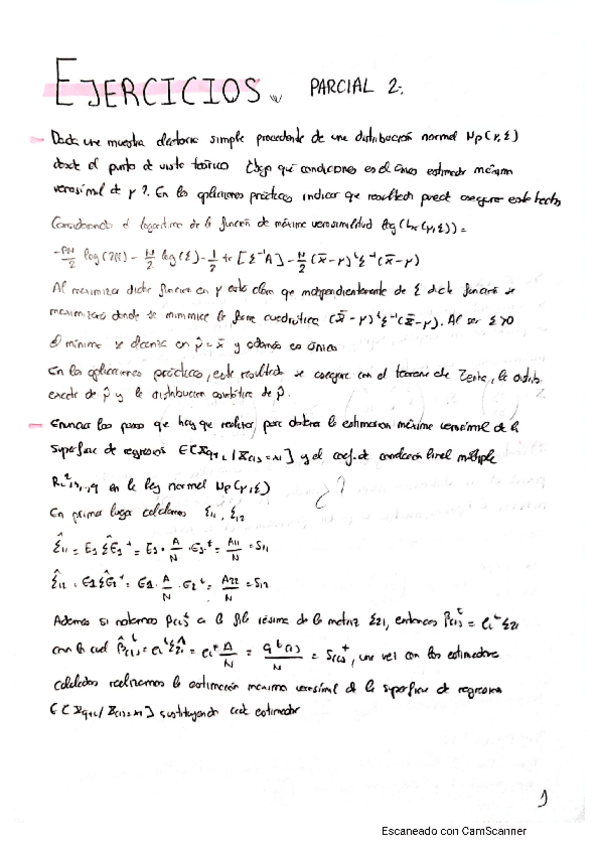 EJERCICIOS. PARCIAL 2:
- Dada una muestra aleatoria simple procedente de una distribución normal Np(μ,Σ)
desde el punto de vista teórico ¿bajo qué condiciones es el único estimador máximo
verosímil de μ?. En las aplicaciones prácticas indicar que resultado puede asegurar este hecho
Considerando el logaritmo de la función de máxima verosimilitud log(Lx(μ,Σ)) =
-pN/2 log(2π) - N/2 log(Σ) - 1/2 tr[Σ⁻¹A] - N/2 (x̄-μ)ᵗΣ⁻¹(x̄-μ)
Al maximizar dicha función en μ está claro que independientemente de Σ dicha función se
maximizará donde se minimice la forma cuadrática (x̄-μ)ᵗΣ⁻¹(x̄-μ). Al ser Σ>0
el mínimo se alcanza en μ̂ = x̄ y además es único
En las aplicaciones prácticas, este resultado se consigue con el teorema de Zehna, la distrib.
exacta de μ̂ y la distribución asintótica de μ̂.
- Enunciar los pasos que hay que realizar para obtener la estimación máximo verosímil de la
superficie de regresión E[X_q+i / X(1)=x1] y el coef. de correlación lineal múltiple
R²i·1,..,q en la ley normal Np(μ,Σ) ¿?
En primer lugar calculamos Σ11, Σ12
Σ̂11 = E1 Σ̂ E1ᵗ = E1 · A/N · E1ᵗ = A11/N = S11
Σ̂12 = E1 Σ̂ E2ᵗ = E1 · A/N · E2ᵗ = A22/N = S12
Además si notamos ρ(i)ᵗ a la fila iésima de la matriz Σ21, entonces ρ(i)ᵗ = eiᵗ Σ21
con lo cual una vez con los estimadores
calculados realizamos la estimación máximo verosímil de la superficie de regresión
E[X_q+i / X(1)=x1] sustituyendo cada estimador
1
Escaneado con CamScanner